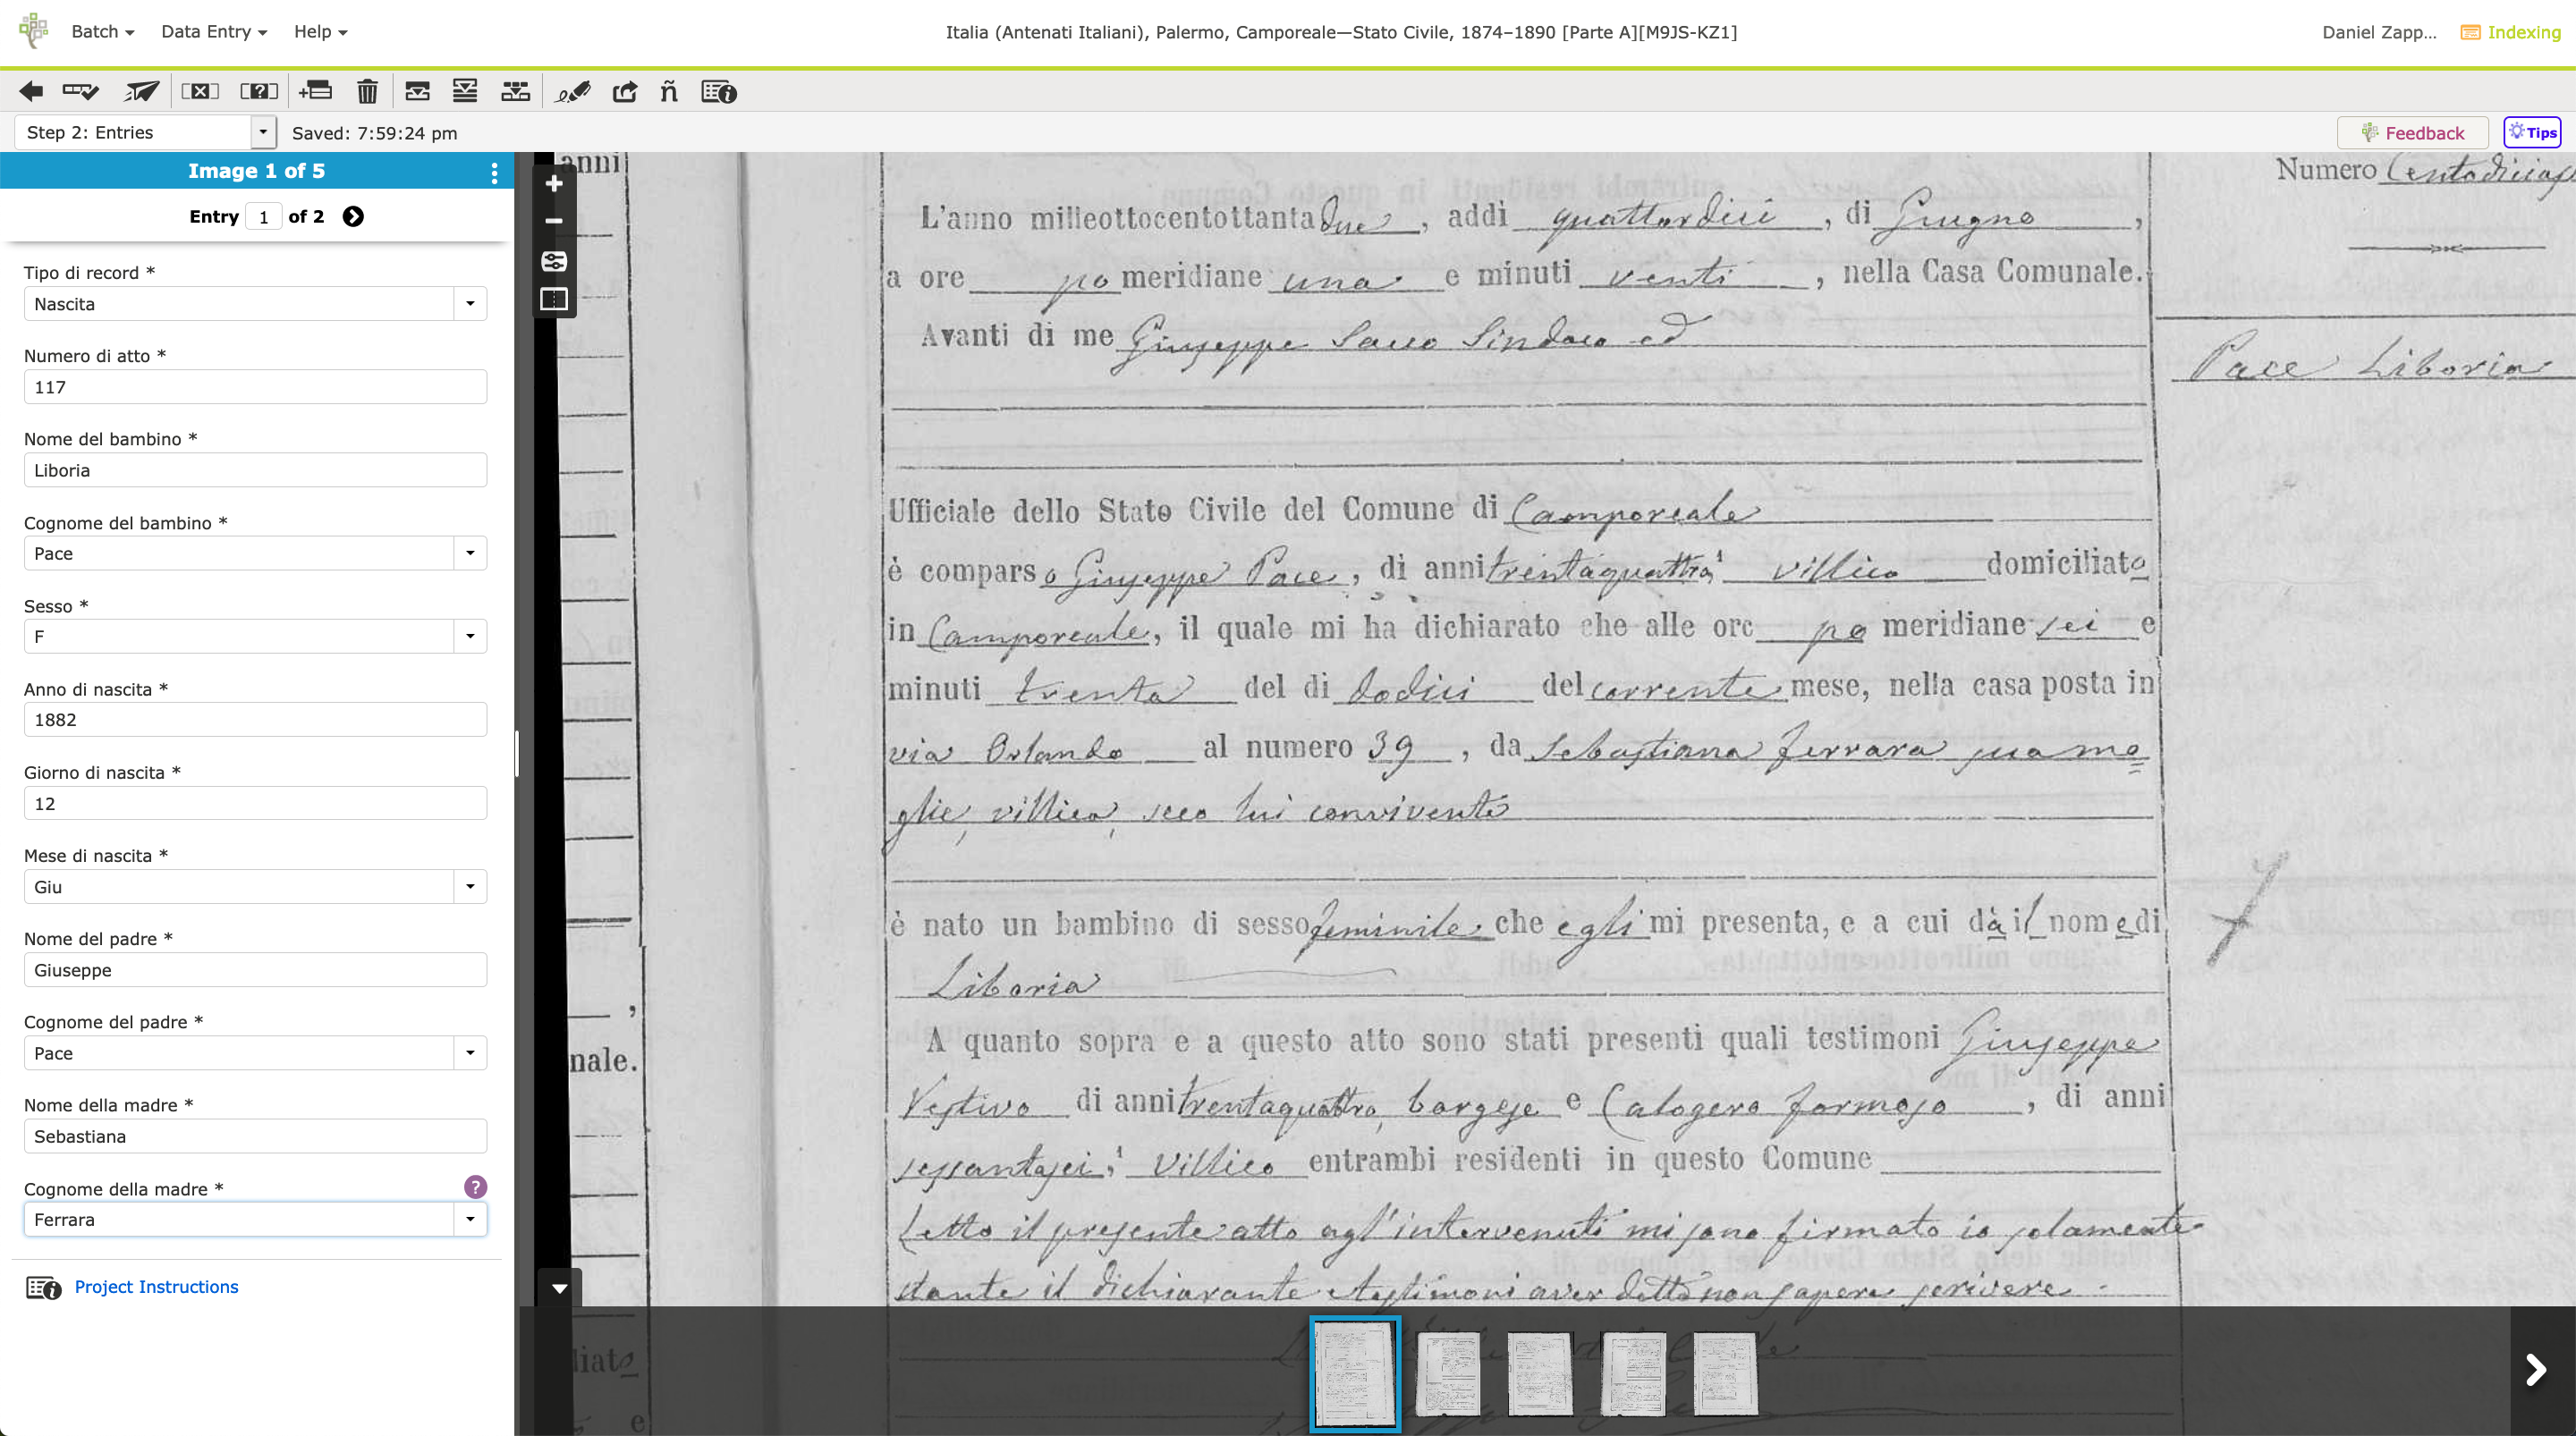 Batch Data Entry Help Italia (Antenati Italiani), Palermo, Camporeale—Stato Civile, 1874–1890 [Parte A][M9JS-KZ1] Daniel Zapp... Indexing
Step 2: Entries Saved: 7:59:24 pm Feedback Tips
Image 1 of 5
Entry 1 of 2
Tipo di record *
Nascita
Numero di atto *
117
Nome del bambino *
Liboria
Cognome del bambino *
Pace
Sesso *
F
Anno di nascita *
1882
Giorno di nascita *
12
Mese di nascita *
Giu
Nome del padre *
Giuseppe
Cognome del padre *
Pace
Nome della madre *
Sebastiana
Cognome della madre * ?
Ferrara
Project Instructions
anni
nale.
liato
e
Numero Centodicias
Pace Liboria
L'anno milleottocentottantadue, addì quattordici, di Giugno,
a ore po meridiane una e minuti venti, nella Casa Comunale.
Avanti di me Giuseppe Sacco Sindaco ed
Ufficiale dello Stato Civile del Comune di Camporeale
è comparso Giuseppe Pace, di anni trentaquattro, villico domiciliato
in Camporeale, il quale mi ha dichiarato che alle ore po meridiane sei e
minuti trenta del dì dodici del corrente mese, nella casa posta in
via Orlando al numero 39, da Sebastiana Ferrara sua mo
glie, villica, seco lui convivente
è nato un bambino di sesso feminile che egli mi presenta, e a cui dà il nome di
Liboria
A quanto sopra e a questo atto sono stati presenti quali testimoni Giuseppe
Vestivo di anni trentaquattro, borgese e Calogero Formoso, di anni
sessantasei, villico entrambi residenti in questo Comune
Letto il presente atto agl'intervenuti mi sono firmato io solamente
stante il dichiarante e testimoni aver detto non sapere scrivere